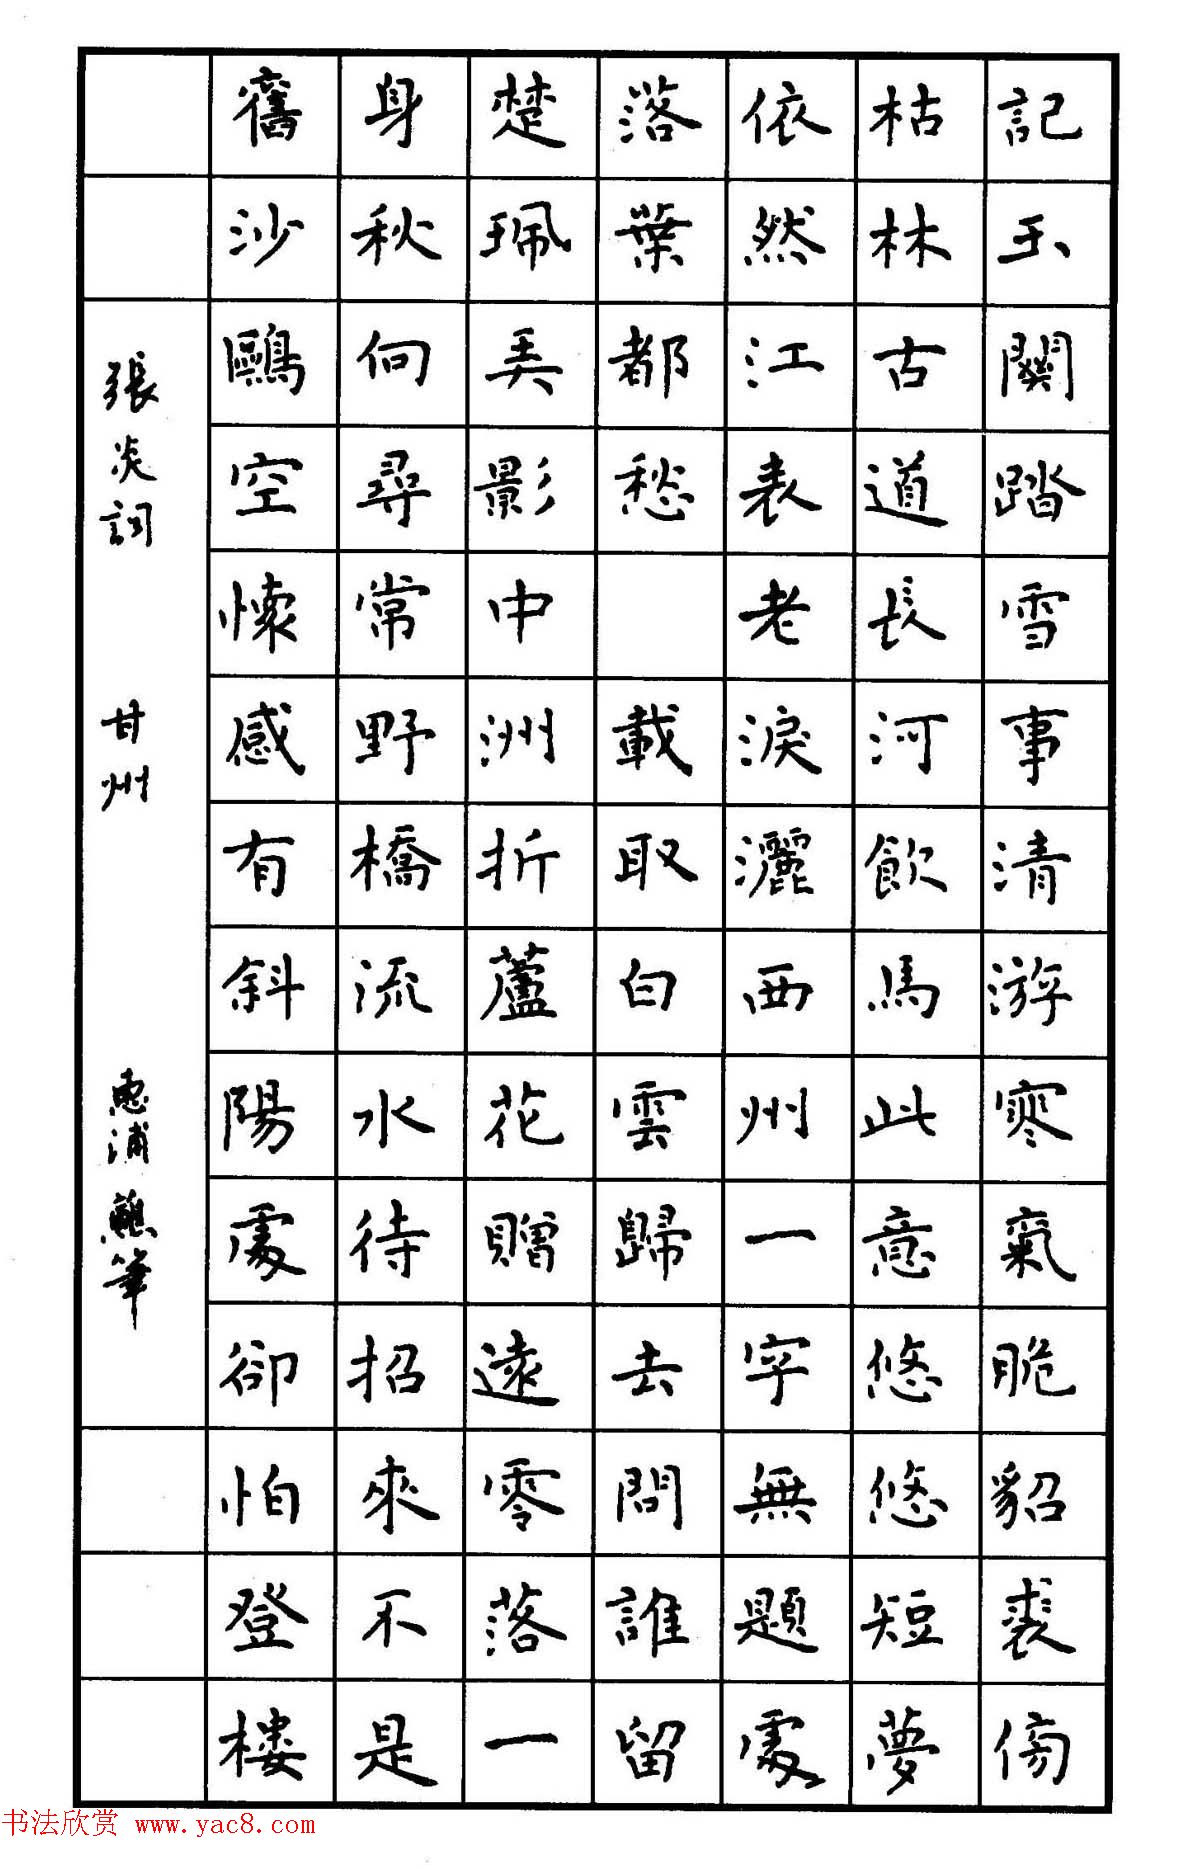 記玉關踏雪事清游寒氣脆貂裘傍
枯林古道長河飲馬此意悠悠短夢
依然江表老淚灑西州一字無題處
落葉都愁 載取白雲歸去問誰留
楚珮弄影中洲折蘆花贈遠零落一
身秋向尋常野橋流水待招來不是
舊沙鷗空懷感有斜陽處卻怕登樓
張炎詞 甘州 惠浦蘸筆
书法欣赏 www.yac8.com